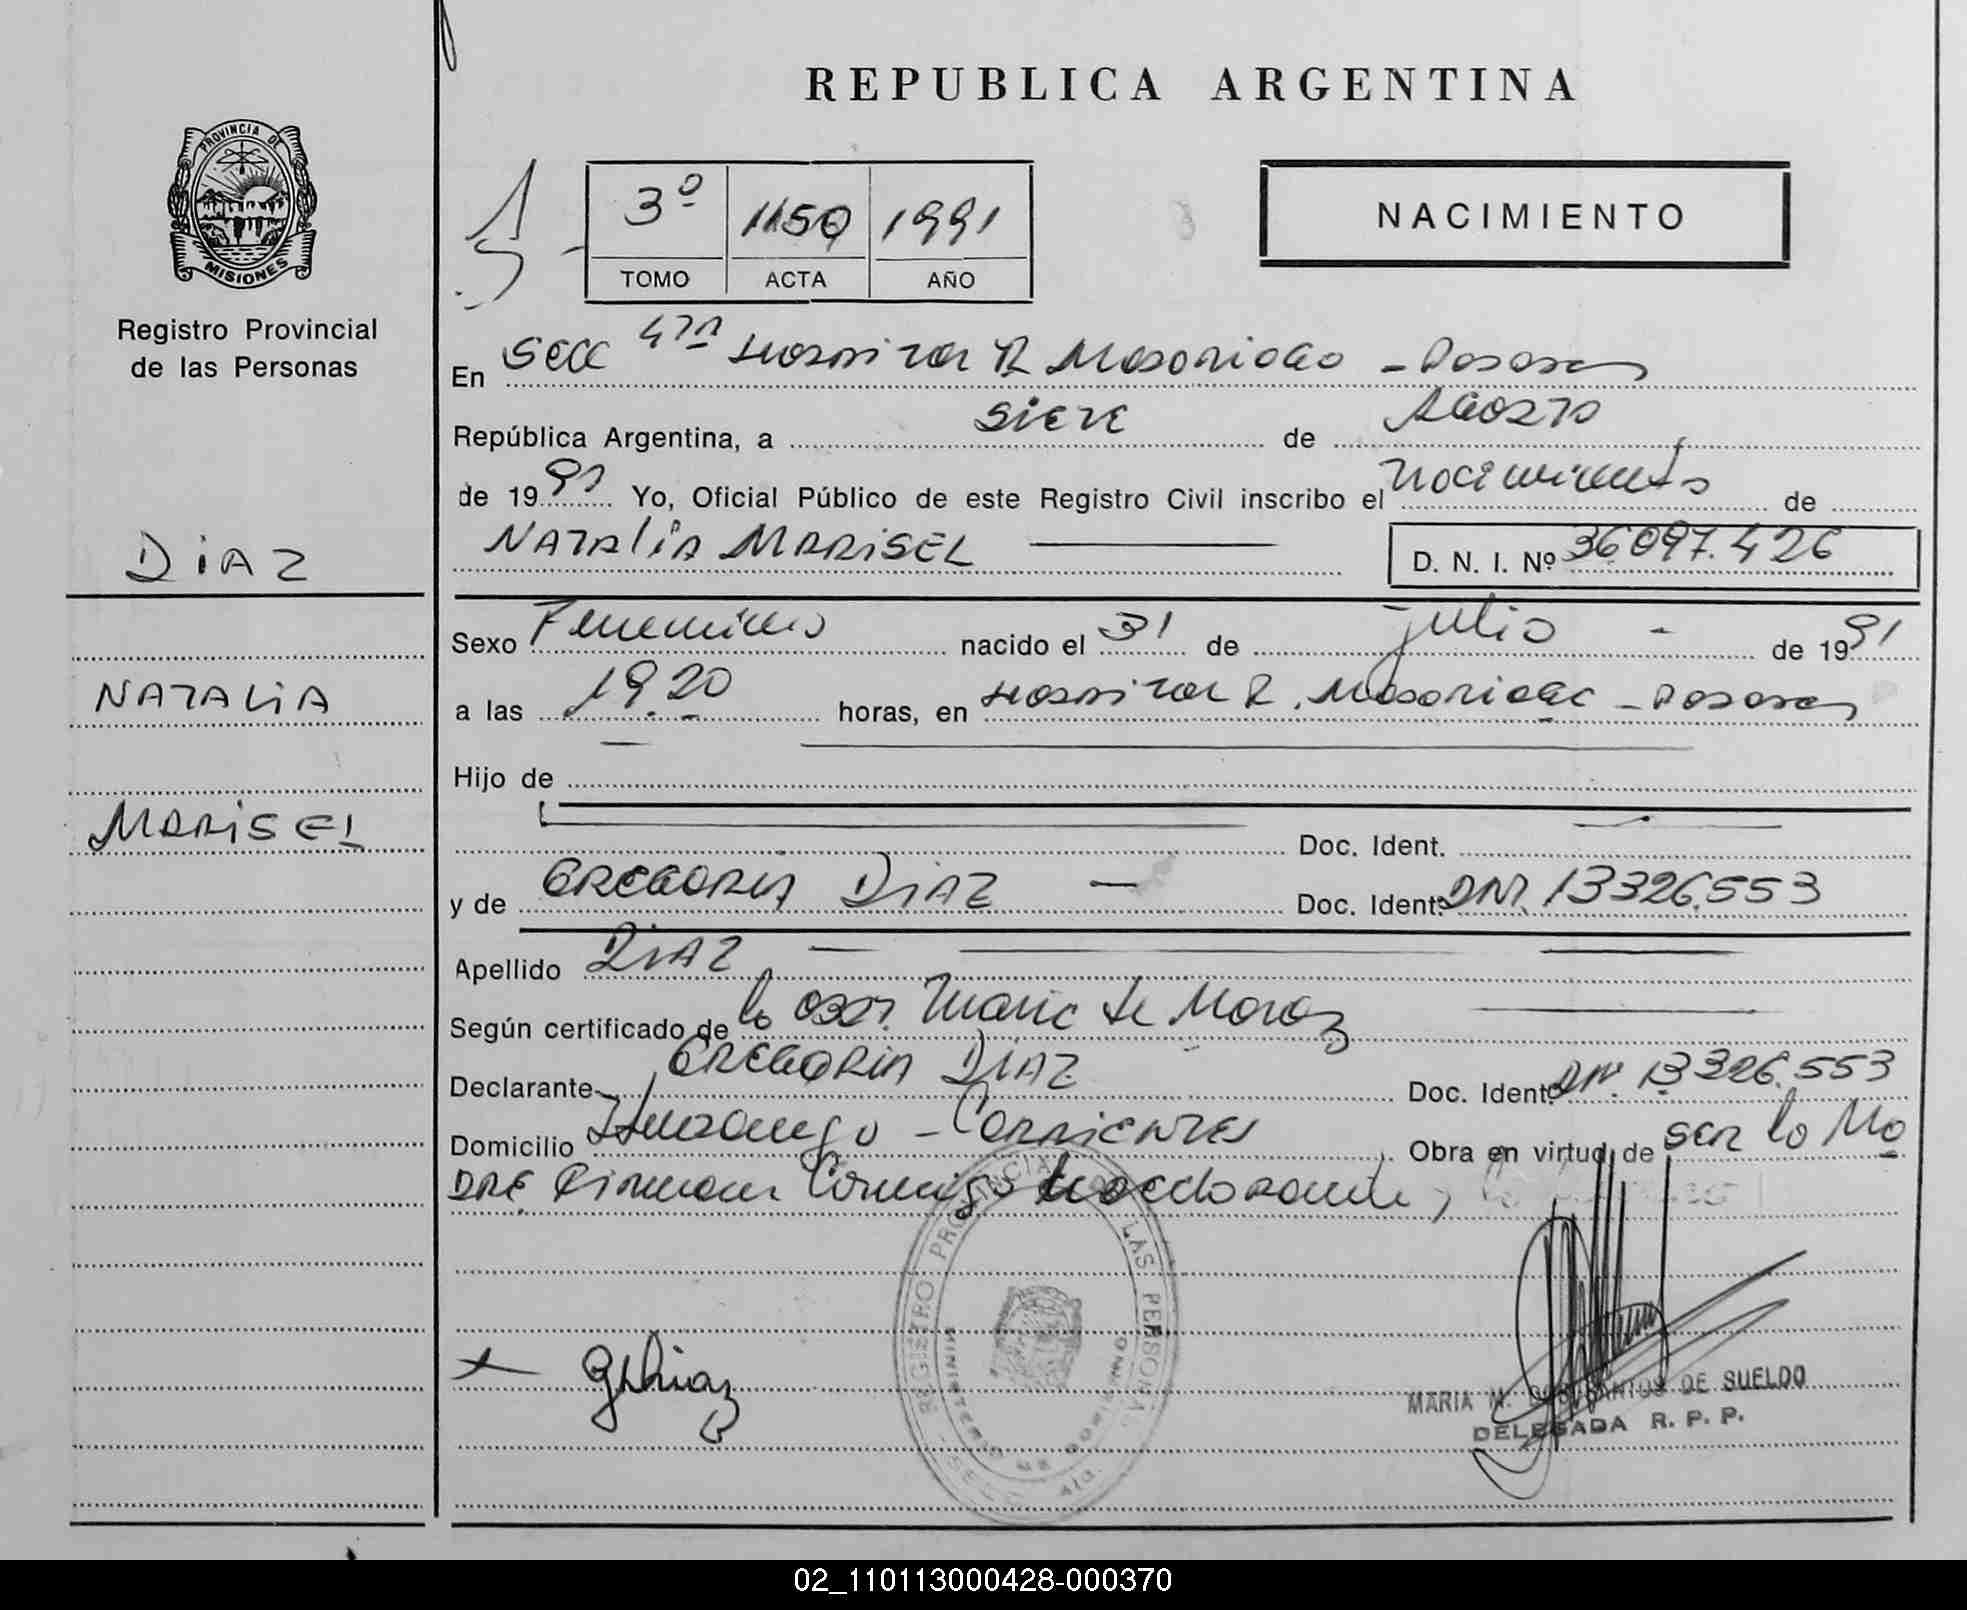 REPUBLICA ARGENTINA
PROVINCIA DE
MISIONES
Registro Provincial
de las Personas
3º 1150 1991
TOMO ACTA AÑO
NACIMIENTO
En Secc 4ta Hospital R Madariaga - Posadas
República Argentina, a Siete de Agosto
de 1991 Yo, Oficial Público de este Registro Civil inscribo el Nacimiento de
NATALIA MARISEL D. N. I. Nº 36097.426
DIAZ
NATALIA
MARISEL
Sexo Femenino nacido el 31 de julio de 1991
a las 19.20 horas, en Hospital R. Madariaga - Posadas
Hijo de
Doc. Ident.
y de GREGORIA DIAZ Doc. Ident. DNI. 13326.553
Apellido DIAZ
Según certificado de la Obst. Maria de
Declarante GREGORIA DIAZ Doc. Ident. DNI. 13326.553
Domicilio Ituzaingo - Corrientes Obra en virtud de ser la Ma
dre Firman Conmigo la declarante,
REGISTRO PROVINCIAL LAS PERSONAS
MINISTERIO DE GOBIERNO
G Diaz
MARIA M. DE SUELDO
DELEGADA R. P. P.
02_110113000428-000370